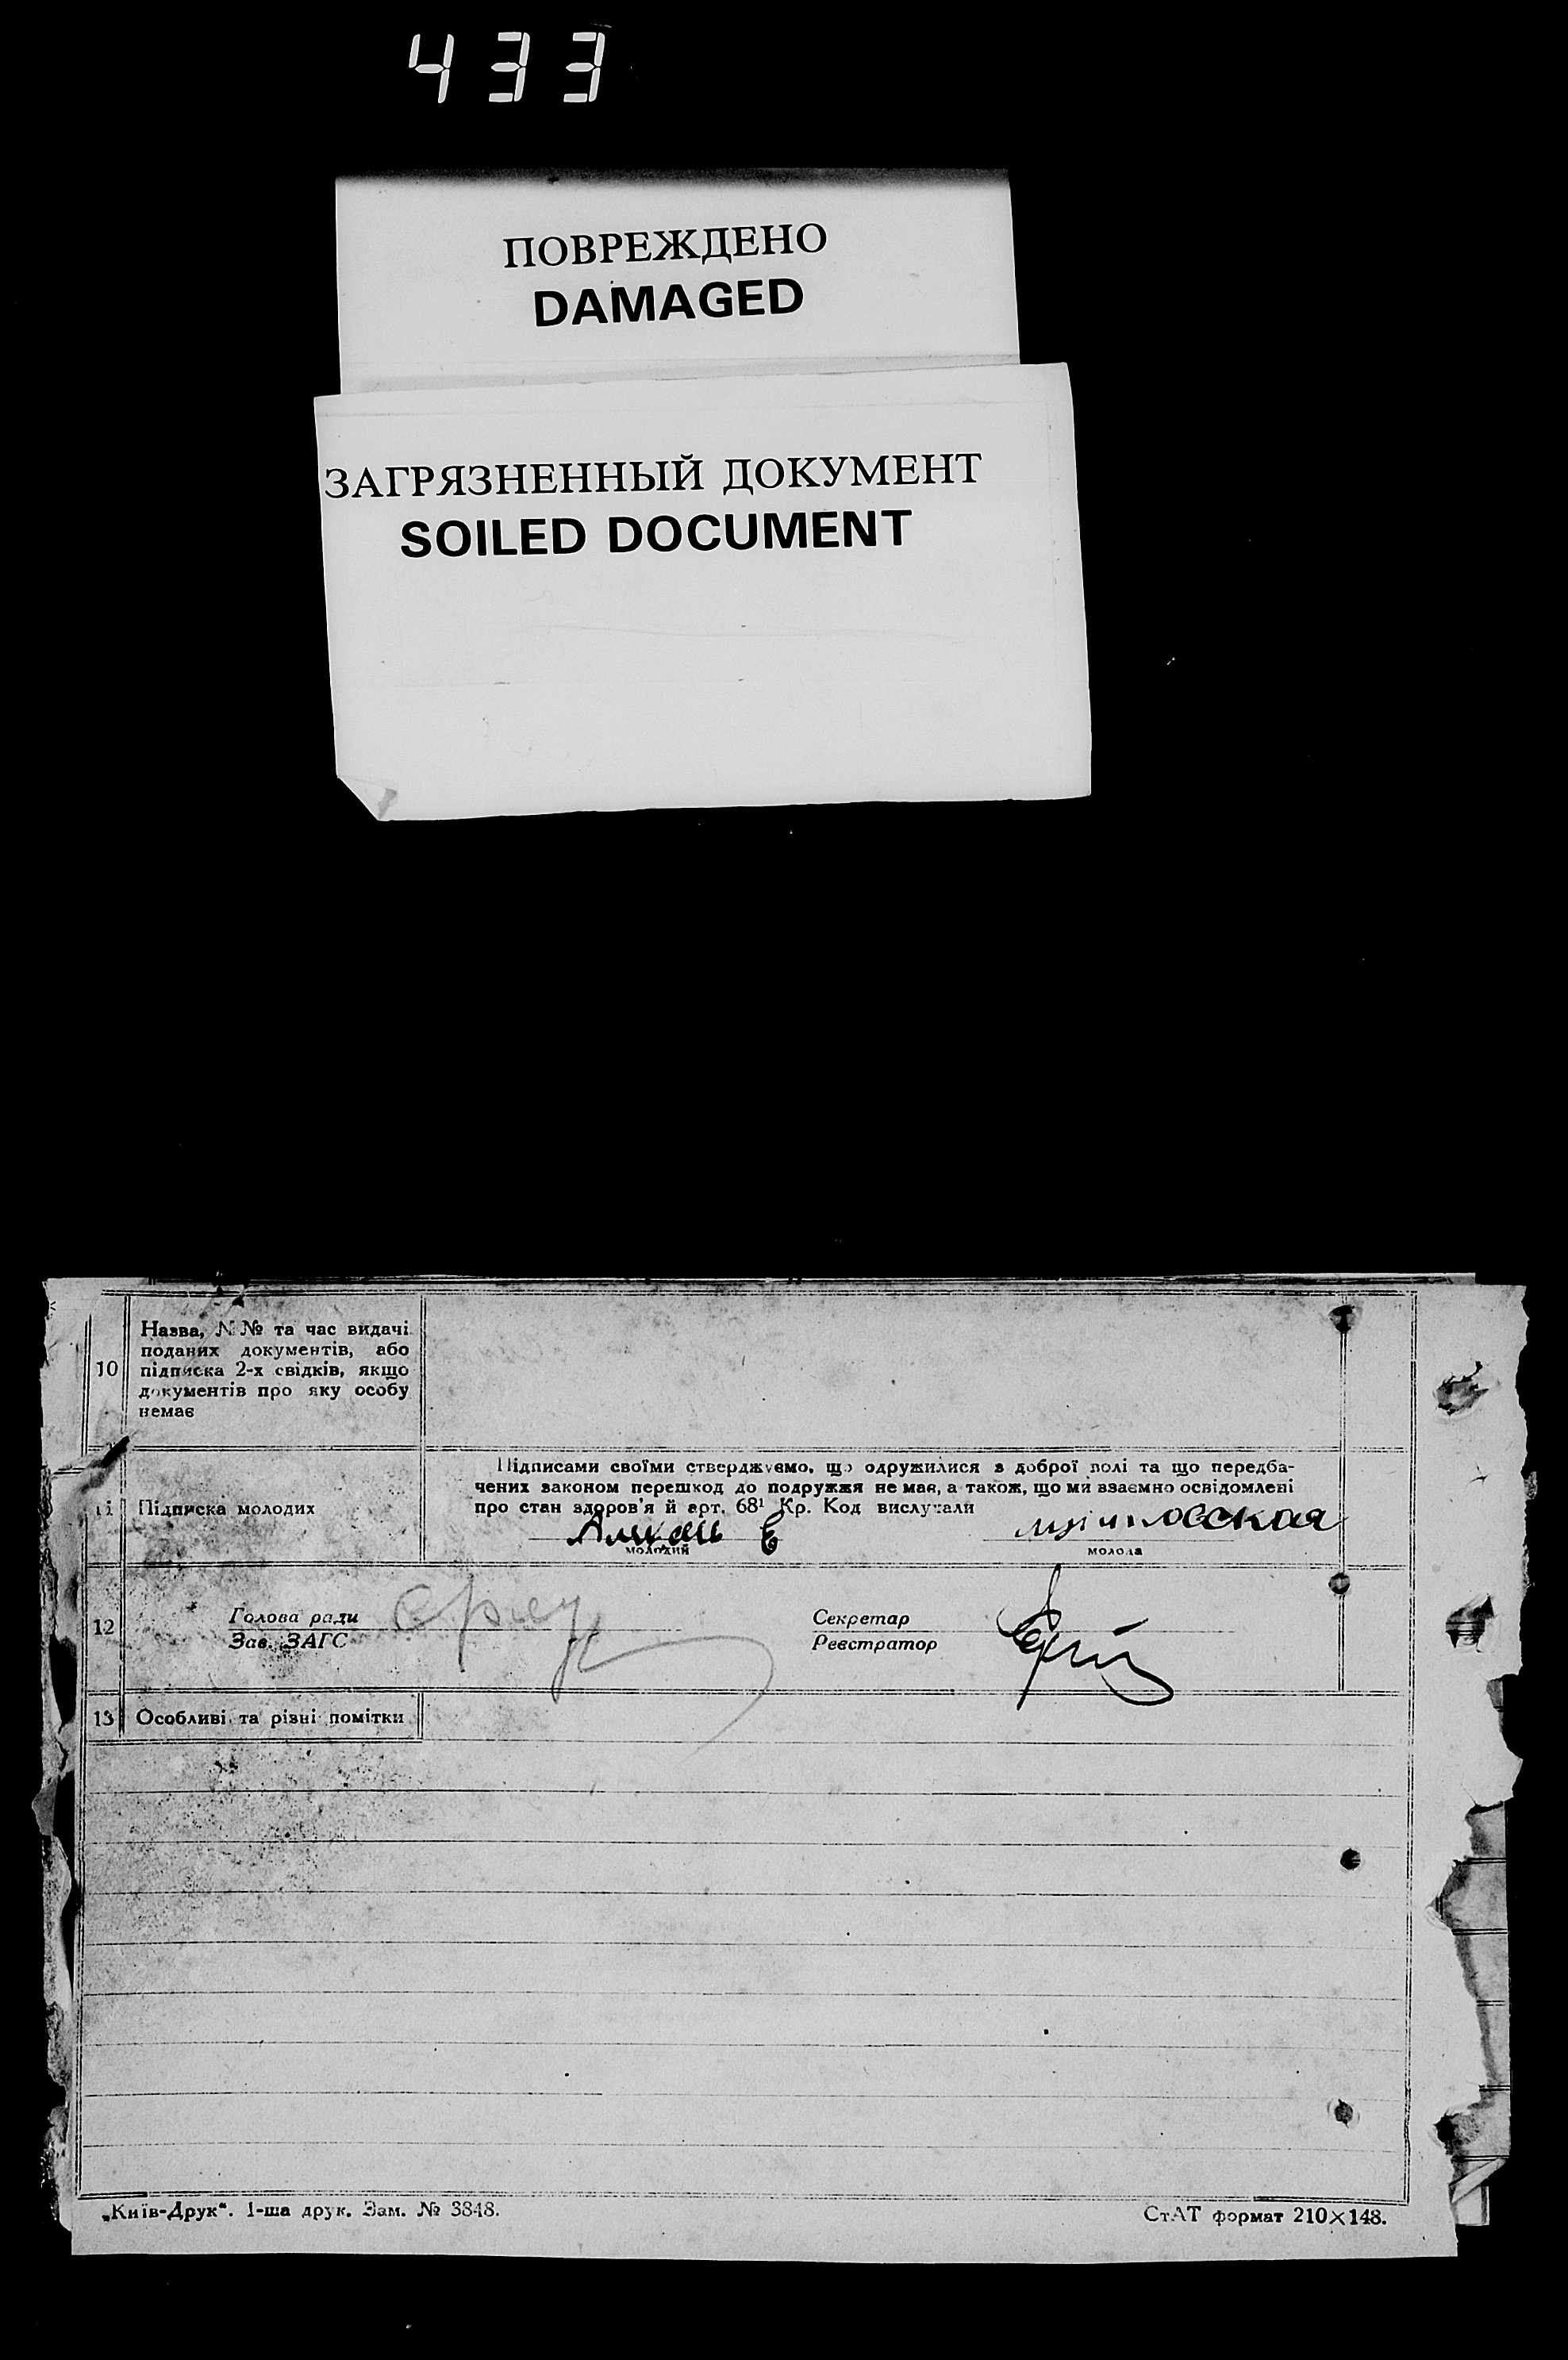 433
ПОВРЕЖДЕНО
DAMAGED
ЗАГРЯЗНЕННЫЙ ДОКУМЕНТ
SOILED DOCUMENT
10
Назва, N №№ та час видачі
поданих документів, або
підписка 2-х свідків, якщо
документів про яку особу
немає
11
Підписка молодих
Підписами своїми стверджуємо, що одружилися з доброї волі та що передба-
чених законом перешкод до подружжя не має, а також, що ми взаємно освідомлені
про стан здоров'я й арт. 68¹ Кр. Код вислухали
молодий
молода
12
Голова ради
Зав. ЗАГС
Секретар
Реєстратор
13
Особливі та різні помітки
„Київ-Друк“. 1-ша друк. Зам. № 3848.
СтАТ формат 210×148.